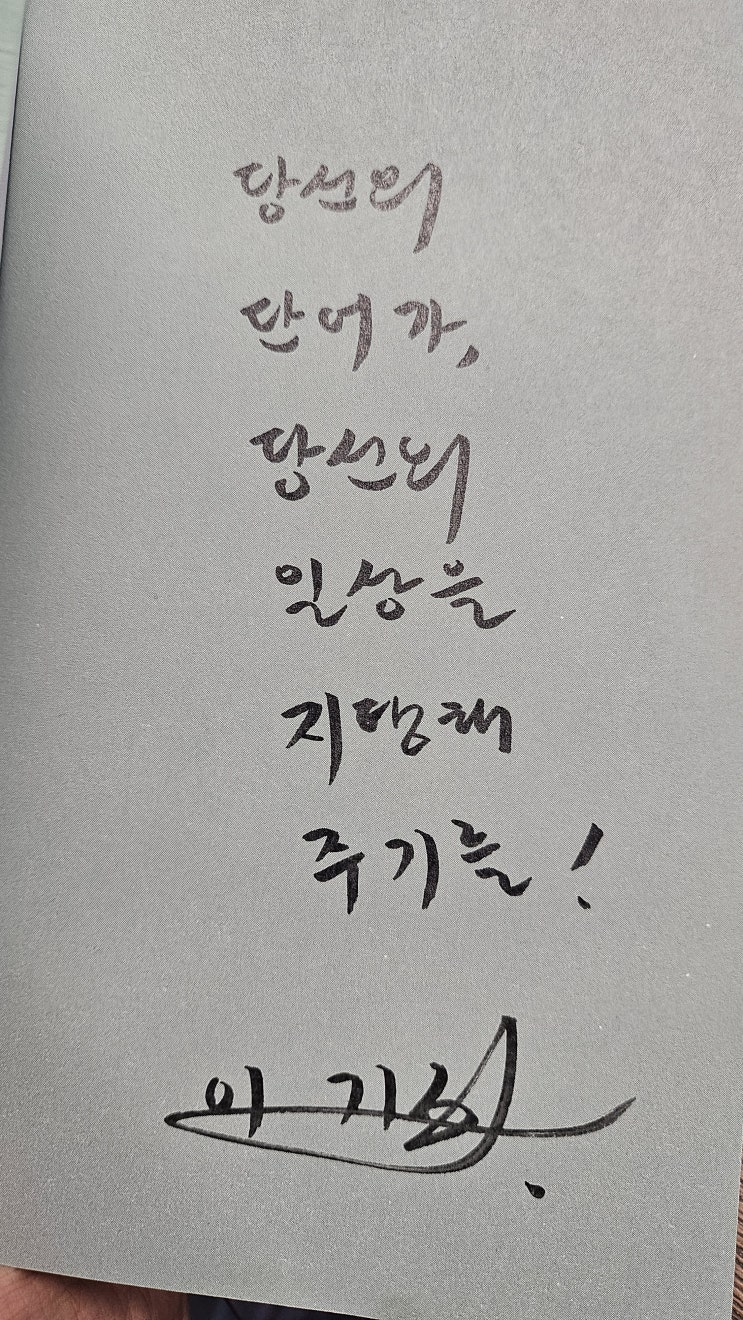 당신의
단어가,
당신의
일상을
지탱해
주기를!
이기주